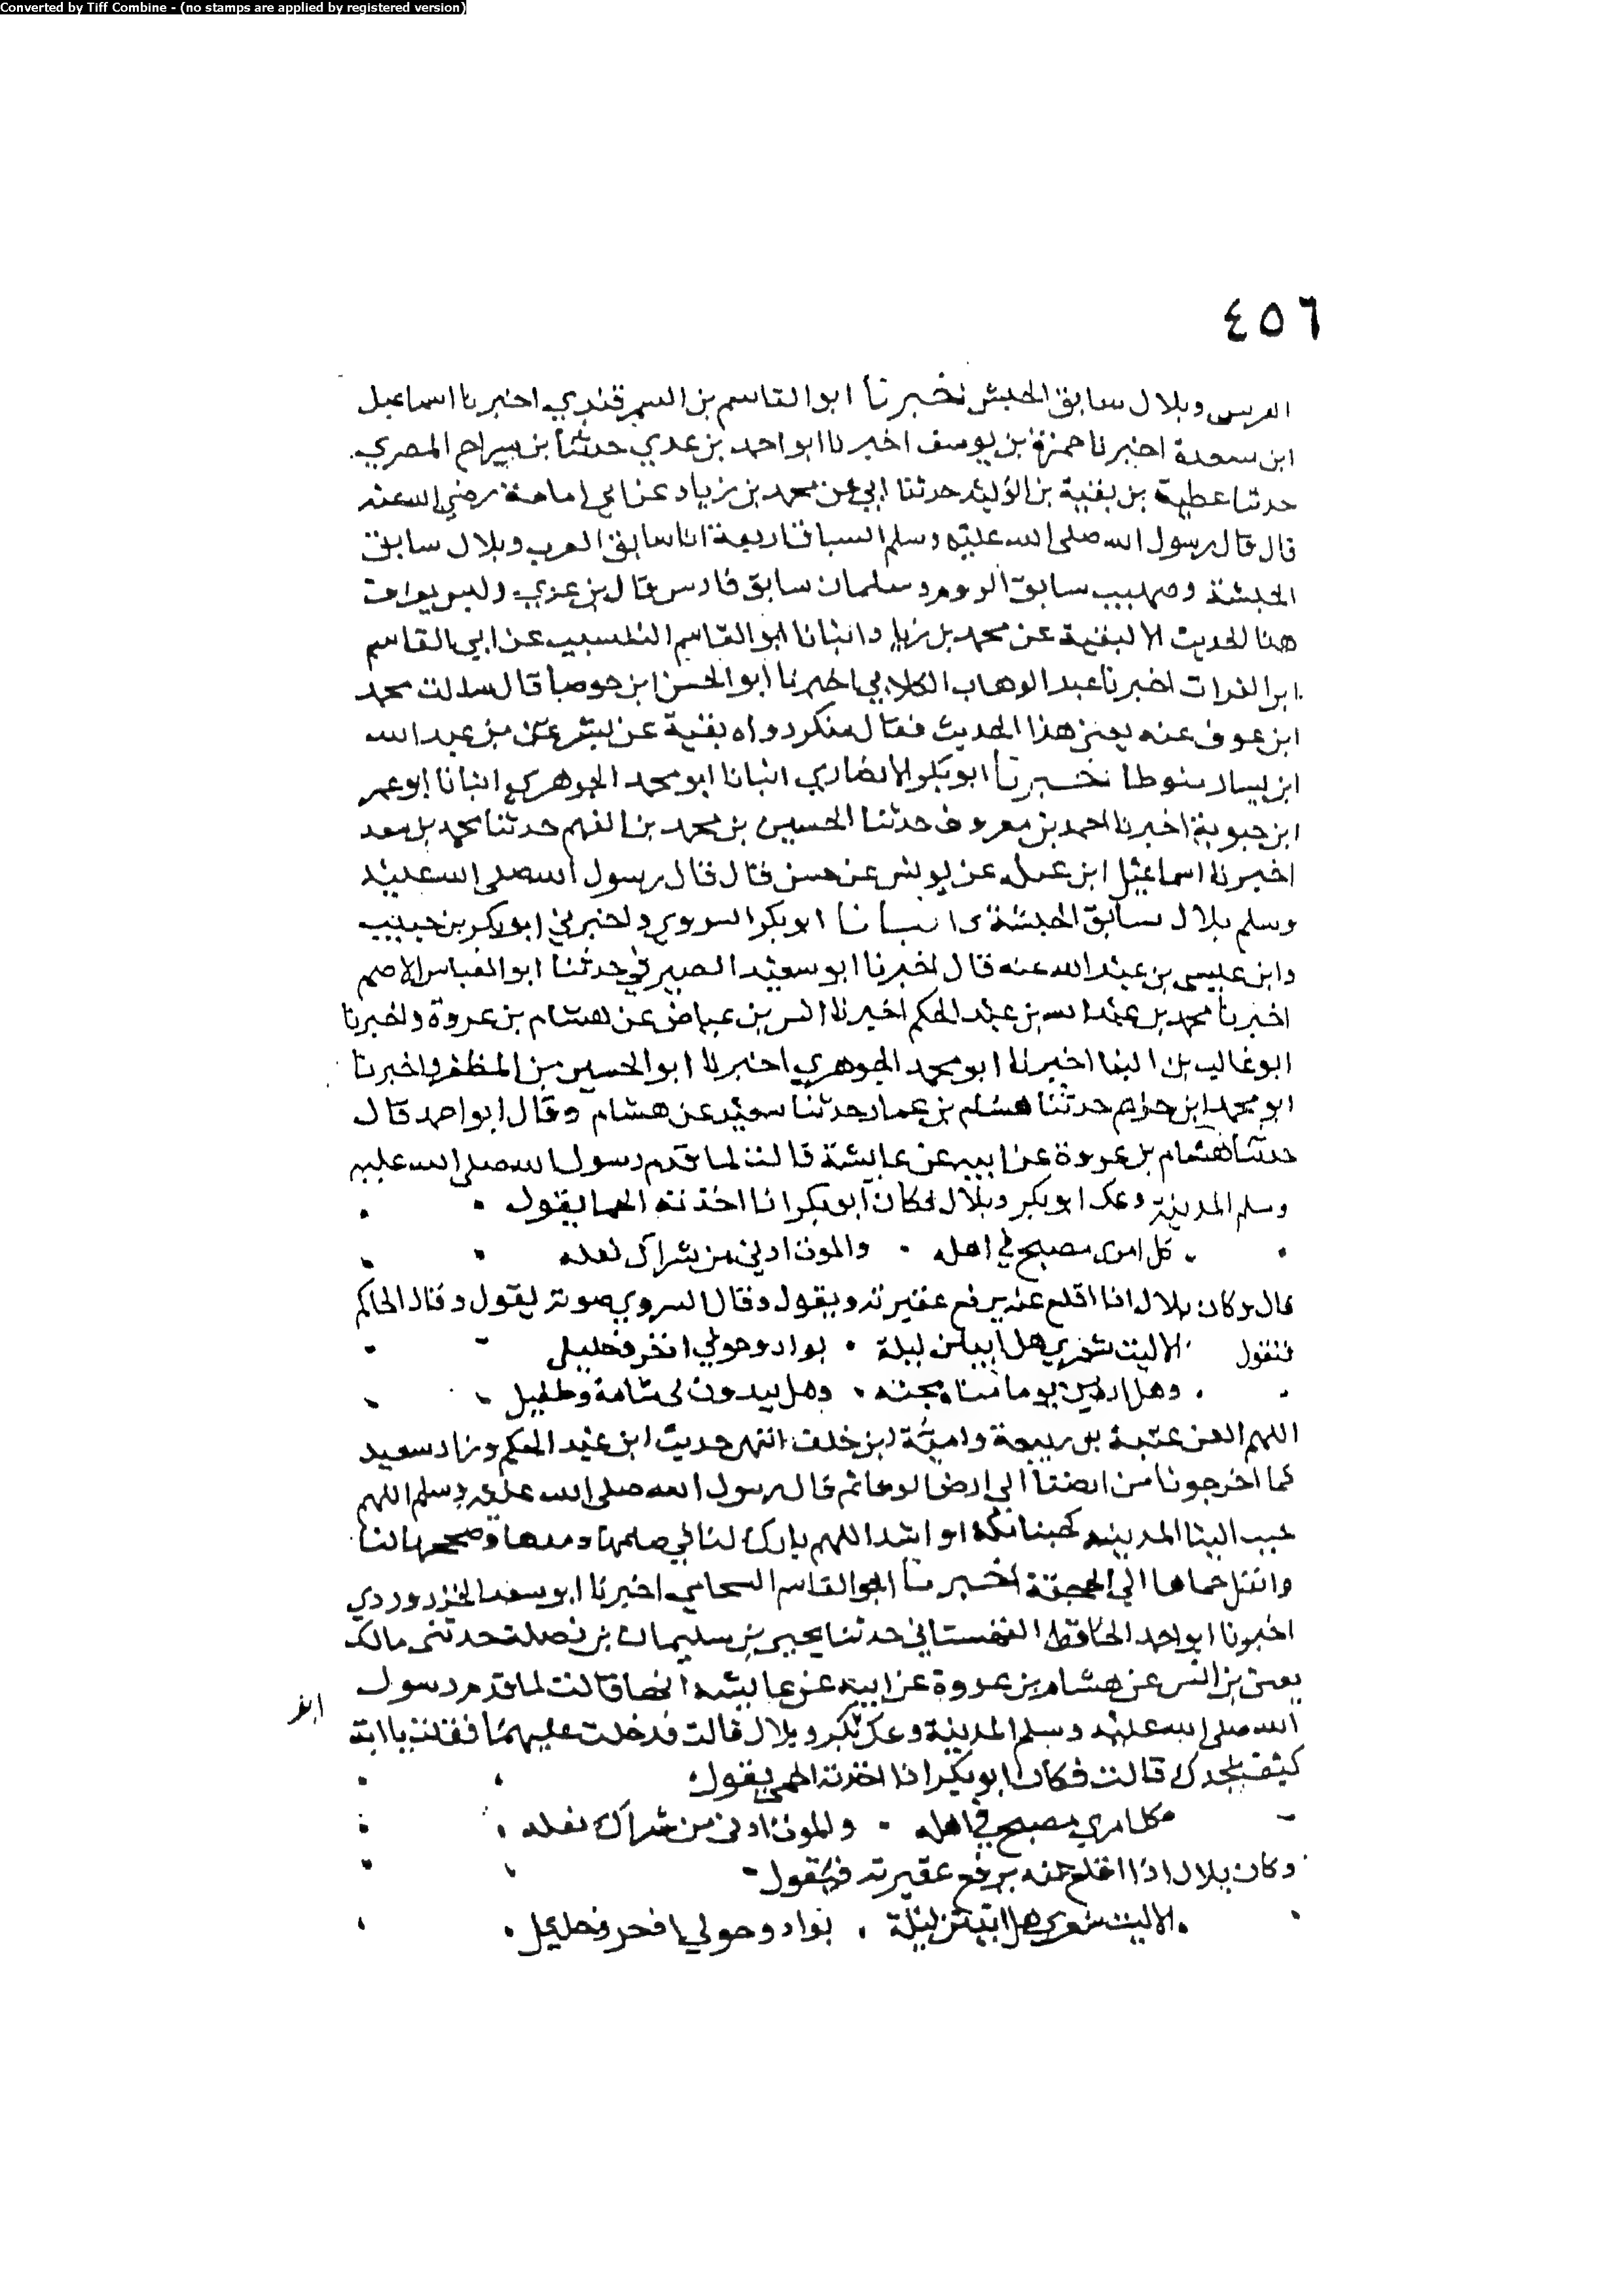 Converted by Tiff Combine - (no stamps are applied by registered version)
٤٥٦
الفرس وبلال سابق الحبش اخبرنا ابوالقاسم بن السمرقندي اخبرنا اسماعيل
ابن سعدة اخبرنا حمزة بن يوسف اخبرنا ابواحمد بن عدي حدثنا بن سراج المصري
حدثنا عطية بن بقية بن الوليد حدثنا ابي عن محمد بن زياد عن ابي امامة رضي الله عنه
قال قال رسول الله صلى الله عليه وسلم السباق اربعة انا سابق العرب وبلال سابق
الحبشة وصهيب سابق الروم وسلمان سابق فارس قال بن عدي وليس
هذا الحديث الا لبقية عن محمد بن زياد وانبانا ابوالقاسم عن ابي القاسم
ابن الفرات اخبرنا عبد الوهاب الكلابي اخبرنا ابوالحسن ابن حوصا قال سالت محمد
ابن عوف عنه يعني هذا الحديث فقال منكر رواه بقية عن بن عبد الله
ابن يسار اخبرنا ابوبكر الانصاري انبانا ابومحمد الجوهري انبانا ابوعمر
ابن حيوية اخبرنا احمد بن معروف حدثنا الحسين بن محمد بن الفهم حدثنا محمد بن سعد
اخبرنا اسماعيل ابن عن يونس عن حسن قال قال رسول الله صلى الله عليه
وسلم بلال سابق الحبشة انبانا ابوبكر السروي واخبرني ابوبكر بن حبيب
وابن عيسى بن عبد الله عنه قال اخبرنا ابوسعيد الصيرفي حدثنا ابوالعباس الاصم
اخبرنا محمد بن عبد الله بن عبد الحكم اخبرنا انس بن عياض عن هشام بن عروة واخبرنا
ابوغالب بن البنا اخبرنا ابومحمد الجوهري اخبرنا ابوالحسين بن المظفر واخبرنا
ابومحمد ابن حدثنا هشام بن عمار حدثنا سعيد عن هشام وقال ابواحمد قال
حدثنا هشام بن عروة عن ابيه عن عايشة قالت لما قدم رسول الله صلى الله عليه
وسلم المدينة وعك ابوبكر وبلال فكان ابوبكر اذا اخذته الحما يقول
كل امرى مصبح في اهله . والموت ادنى من شراك نعله
قال وكان بلال اذا اقلع عنه يرفع عقيرته ويقول وقال السروي صوته يقول وقال الحاكم
فتقول الا ليت شعري هل ابيتن ليلة . بواد وحولي اذخر وجليل
وهل اردن يوما مياه مجنة . وهل يبدون لي شامة وطفيل
اللهم العن عتبة بن ربيعة وامية ابن خلف انتهى حديث ابن عبد الحكم وزاد سعيد
كما اخرجونا من ارضنا الى ارض الوبا ثم قال رسول الله صلى الله عليه وسلم اللهم
حبب الينا المدينة كحبنا مكة او اشد اللهم بارك لنا في صاعها ومدها وصححها لنا
وانقل حماها الى الجحفة اخبرنا ابوالقاسم الشحامي اخبرنا ابوسعد الجنزروردي
اخبرنا ابواحمد الحافظ حدثنا يحيى بن سليمان بن نضلة حدثني مالك
يعني بن انس عن هشام بن عروة عن ابيه عن عايشة انها قالت لما قدم رسول
الله صلى الله عليه وسلم المدينة وعك بكر وبلال قالت فدخلت عليهما فقلت يا ابة
كيف تجدك قالت فكان ابوبكر اذا اخذته الحمى يقول
كل امري مصبح في اهله . والموت ادنى من شراك نعله
وكان بلال اذا اقلع عنه يرفع عقيرته فيقول
الا ليت شعري هل ابيتن ليلة . بواد وحولي اذخر وجليل